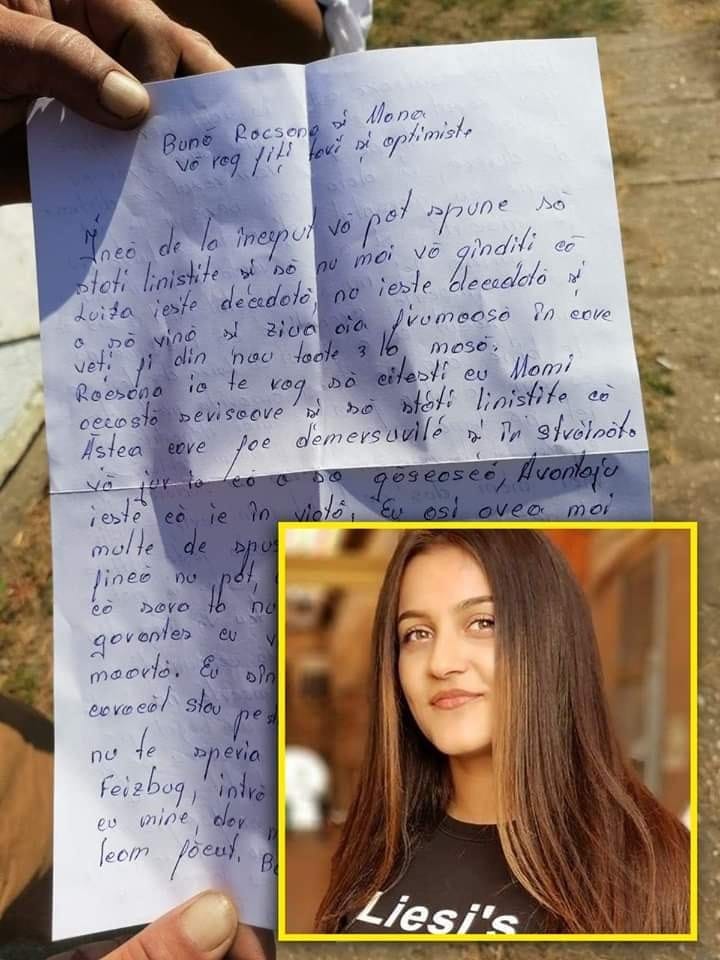 Bună Racsana și Mona
vă rog fiți tari și optimiste
Încă de la început vă pot spune să
stati linistite și să nu mai vă gîndiți că
Luiza ieste decedată, nu ieste decedată și
o să vină și ziua aia frumoasă în care
veți fi din nou toate 3 la masă.
Racsana io te rog să citesti cu Mami
accastă scrisoare și să stati linistite că
Astea care fac demersurile și în străinăta
vă jur io că o so găsească, Avantaju
ieste că ie în viată, Eu asi avea mai
multe de spus
fincă nu pot,
că sora ta nu
garantes cu v
maartă. Eu sîn
caracal stau pest
nu te speria
Feizbug, intră
cu mine, dar n
leam făcut. B
Liesi's